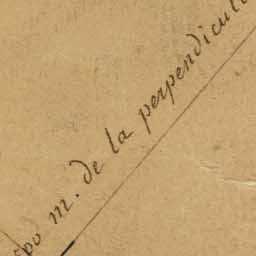 m. de la perpendicul